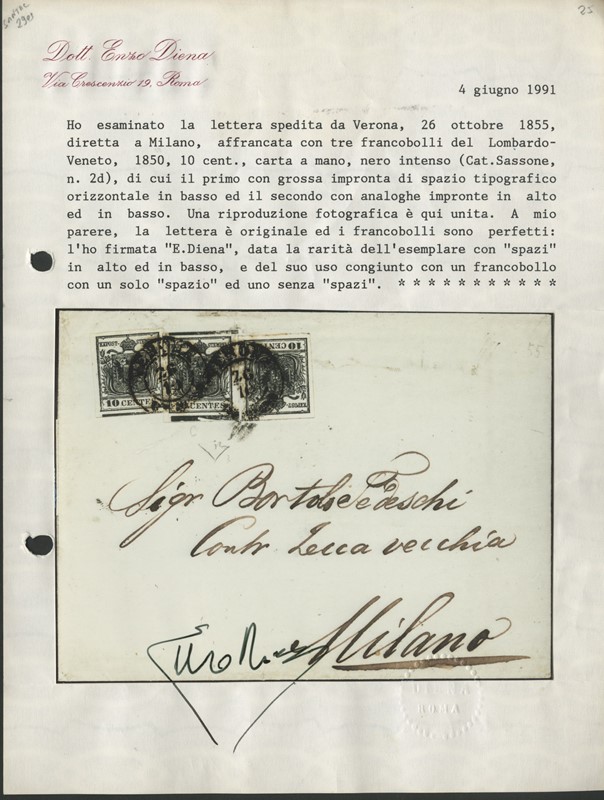 25
Dott. Enzo Diena
Via Crescenzio 19, Roma
4 giugno 1991
Ho esaminato la lettera spedita da Verona, 26 ottobre 1855,
diretta a Milano, affrancata con tre francobolli del Lombardo-
Veneto, 1850, 10 cent., carta a mano, nero intenso (Cat.Sassone,
n. 2d), di cui il primo con grossa impronta di spazio tipografico
orizzontale in basso ed il secondo con analoghe impronte in alto
ed in basso. Una riproduzione fotografica è qui unita. A mio
parere, la lettera è originale ed i francobolli sono perfetti:
l'ho firmata "E.Diena", data la rarità dell'esemplare con "spazi"
in alto ed in basso, e del suo uso congiunto con un francobollo
con un solo "spazio" ed uno senza "spazi". * * * * * * * * * * *
10 CENTES
CENTES
10 CENT
Sigr Bortolo Tedeschi
Contr. Zecca vecchia
Milano
DIENA
ROMA